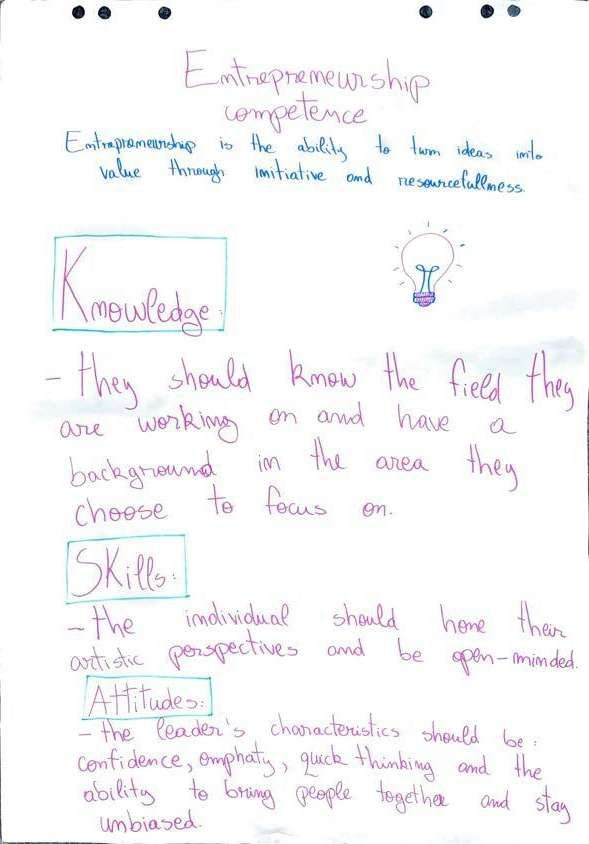 Entrepreneurship
competence
Entrapraneurship is the ability to turn ideas into
value through initiative and resourcefullness.
Knowledge:
- they should know the field they
are working on and have a
background in the area they
choose to focus on.
Skills:
- the individual should hone their
artistic perspectives and be open-minded.
Attitudes:
- the leader's characteristics should be:
confidence, emphaty, quick thinking and the
ability to bring people together and stay
unbiased.